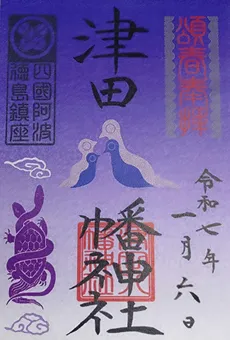 頌春奉拝
津田八幡神社
令和七年
一月六日
四國阿波
徳島鎮座